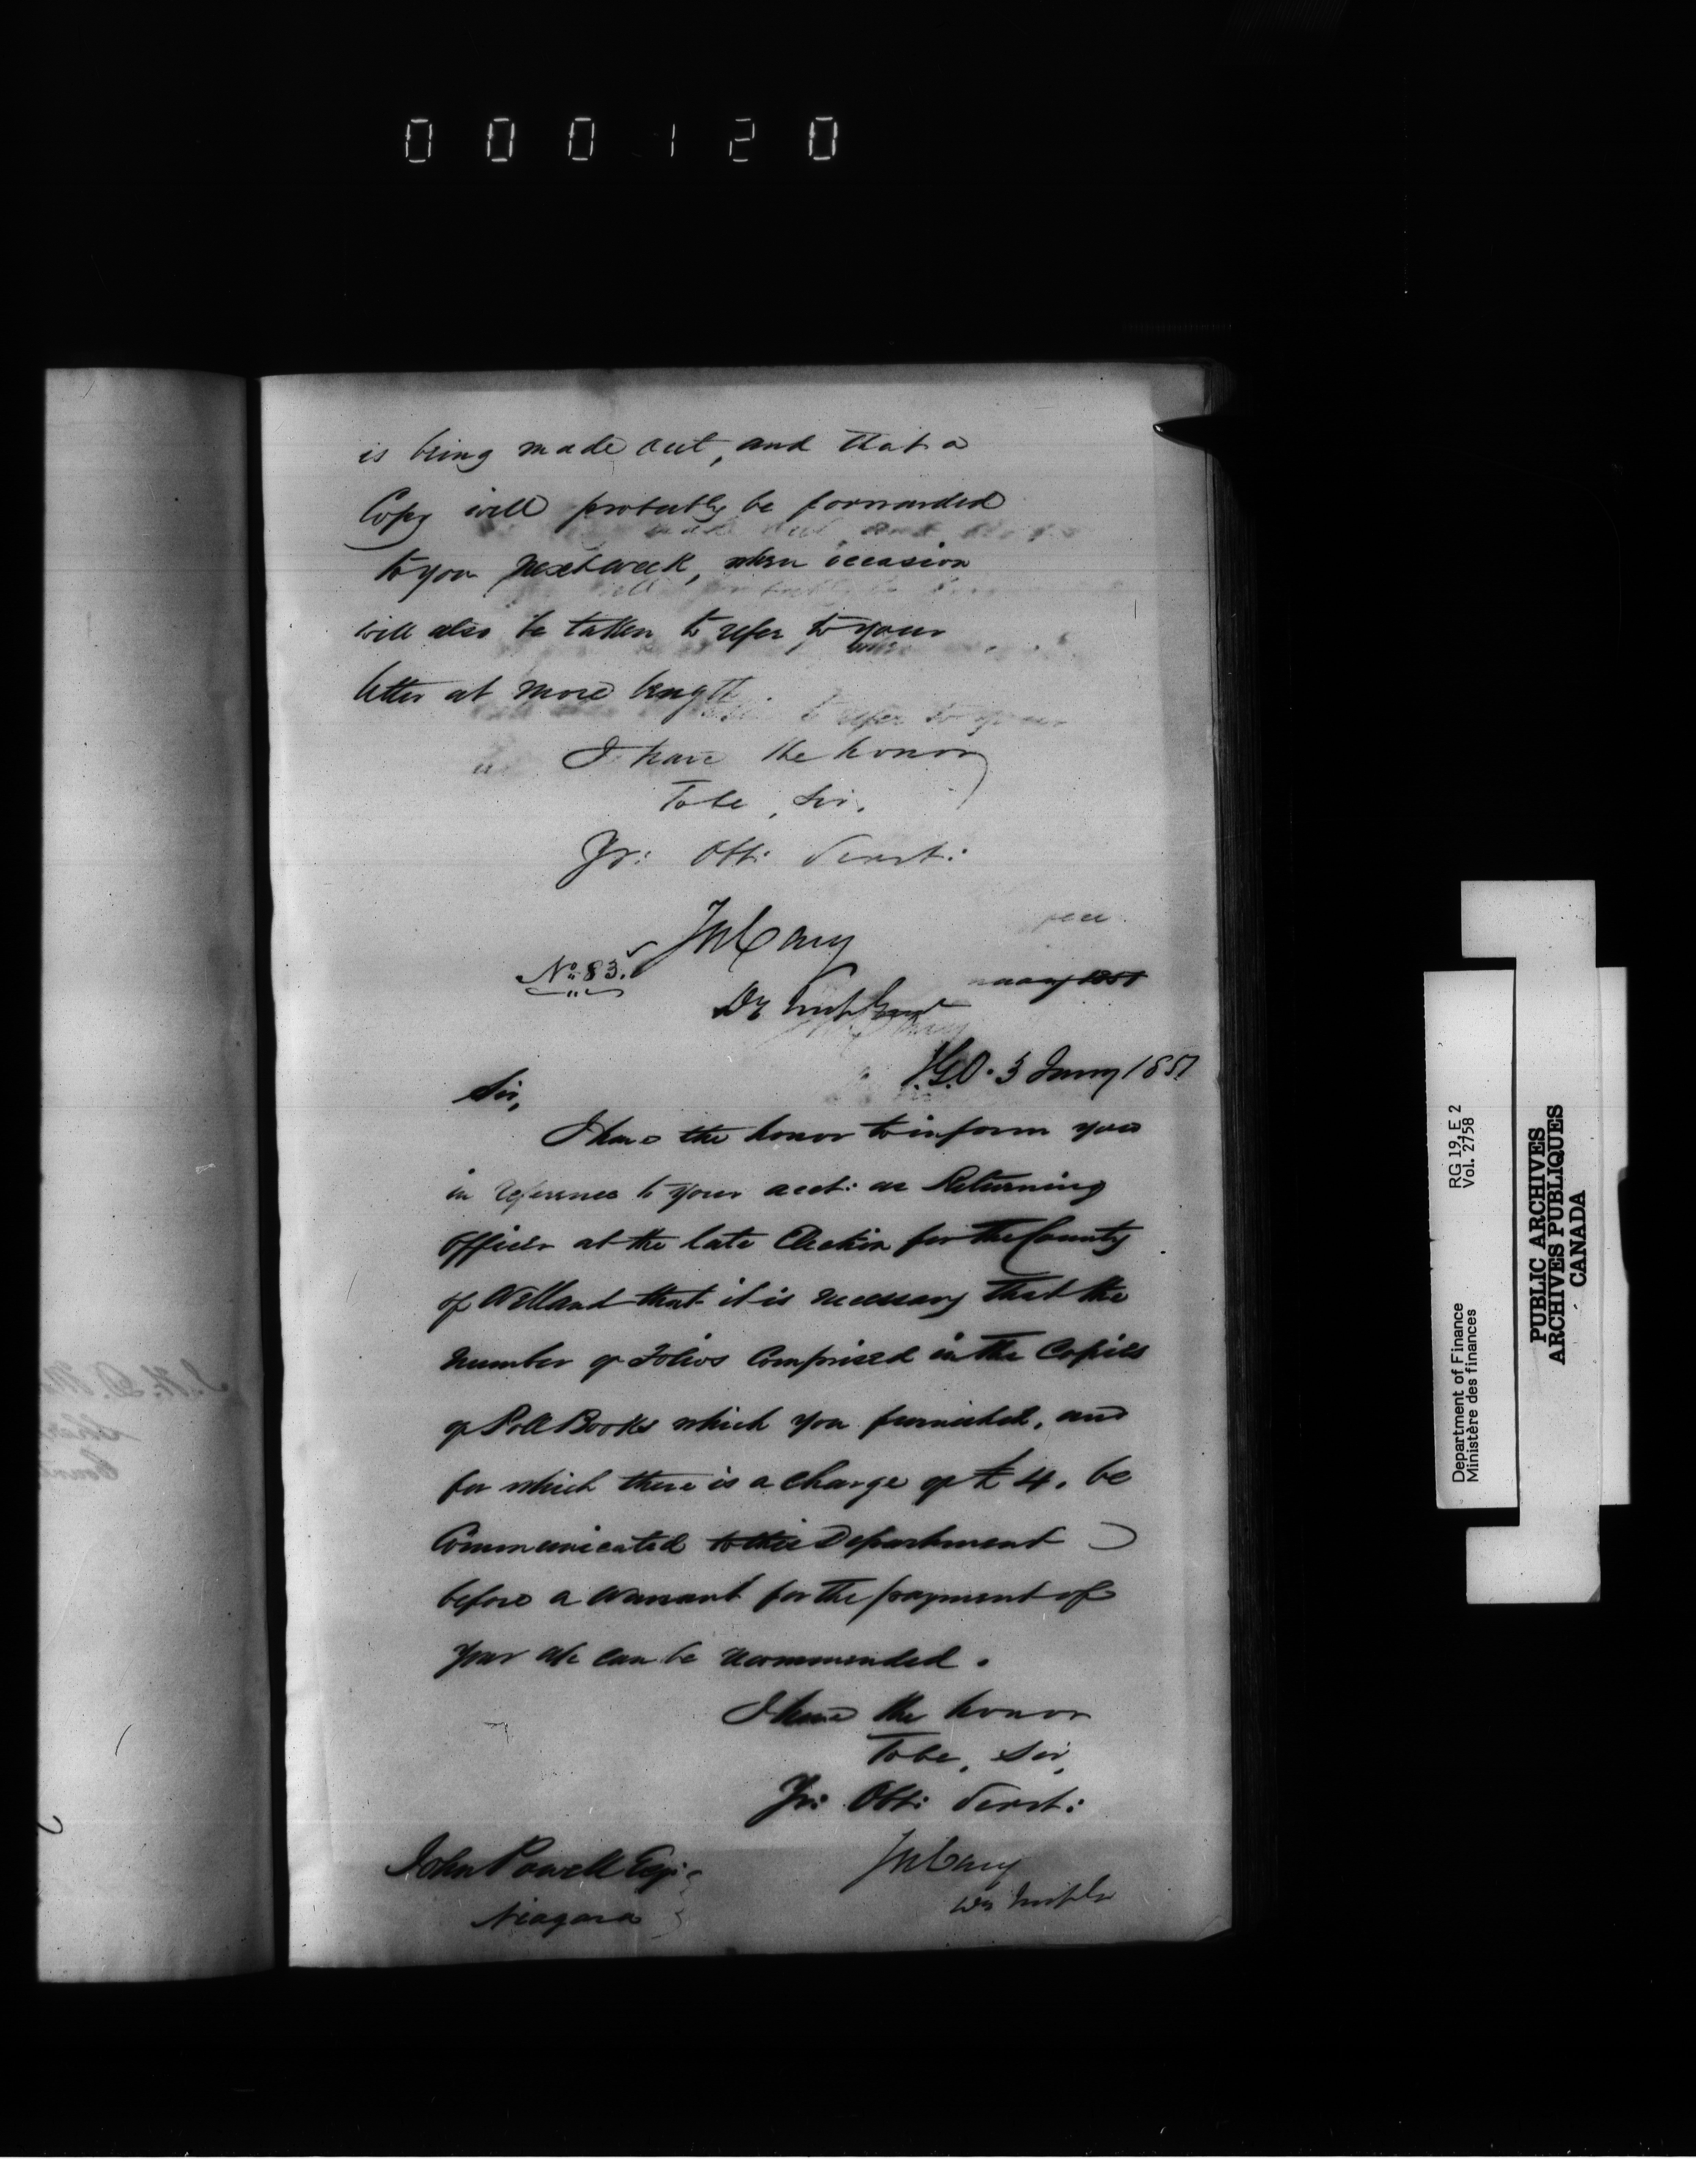 000120
is being made out, and that a
Copy will probably be forwarded
to you next week, when occasion
will also be taken to refer to your
letter at more length.
I have the honor
To be, Sir,
Yr: Obt: Servt:
Jn Cary
No. 83.
Dy Insp Genl
I.G.O. 3 Jany 1851
Sir,
I have the honor to inform you
in reference to your acct: as Returning
Officer at the late Election for the County
of Welland that it is necessary that the
number of folios Comprised in the Copies
of Poll Books which you furnished, and
for which there is a charge of £4. be
Communicated to this Department
before a warrant for the payment of
your a/c can be recommended.
I have the honor
To be, Sir,
Yr: Obt: Servt:
John Powell Esqr:
Niagara
Jn Cary
Dy Insp Gl
Department of Finance
Ministère des finances
RG 19, E 2
Vol. 2758
PUBLIC ARCHIVES
ARCHIVES PUBLIQUES
CANADA